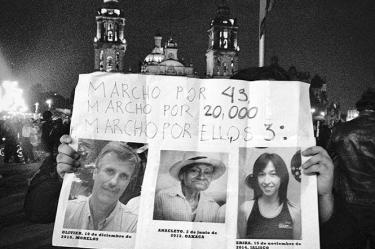 MARCHO POR 43,
MARCHO POR 20,000
MARCHO POR ELLOS 3:
OLIVIER, 10 de diciembre de 2010, MORELOS
ANACLETO, 2 de junio de 2012, OAXACA
ERIKA, 16 de noviembre de 2014, JALISCO